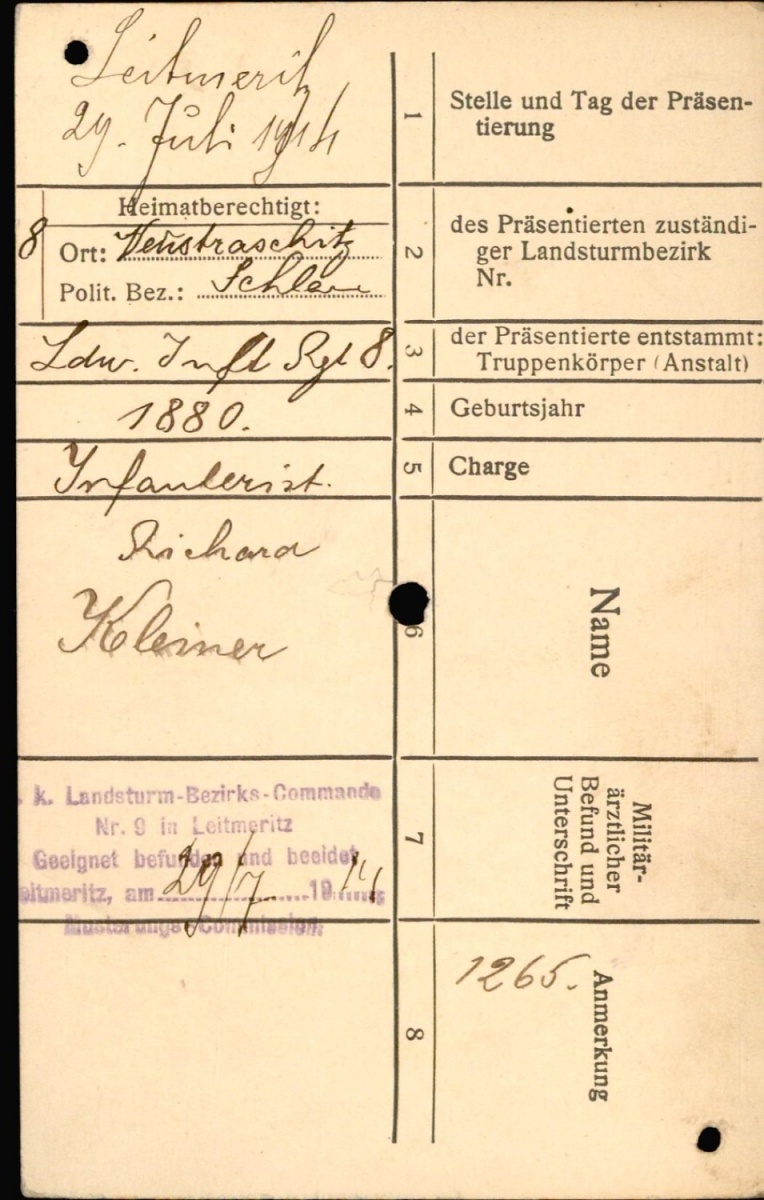 Leitmeritz
29. Juli 1914
1
Stelle und Tag der Präsen-
tierung
Heimatberechtigt:
8
Ort: Neustraschitz
Polit. Bez.: Schlan
2
des Präsentierten zuständi-
ger Landsturmbezirk
Nr.
Ldw. Inft Rgt 8.
3
der Präsentierte entstammt:
Truppenkörper (Anstalt)
1880.
4
Geburtsjahr
Infanterist.
5
Charge
Richard
Kleiner
6
Name
k. Landsturm-Bezirks-Commando
Nr. 9 in Leitmeritz
Geeignet befunden und beeidet
eitmeritz, am 29/7 1914
Musterungs-Commission.
7
Militär-
ärztlicher
Befund und
Unterschrift
1265.
8
Anmerkung